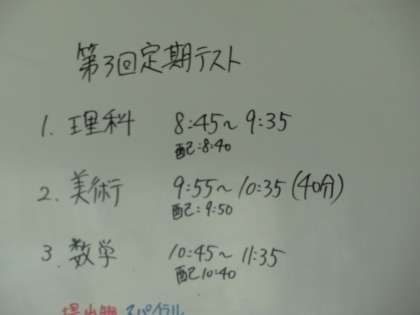 第3回定期テスト
1. 理科 8:45~9:35
配:8:40
2. 美術 9:55~10:35(40分)
配:9:50
3. 数学 10:45~11:35
配10:40
提出物 スパイラル